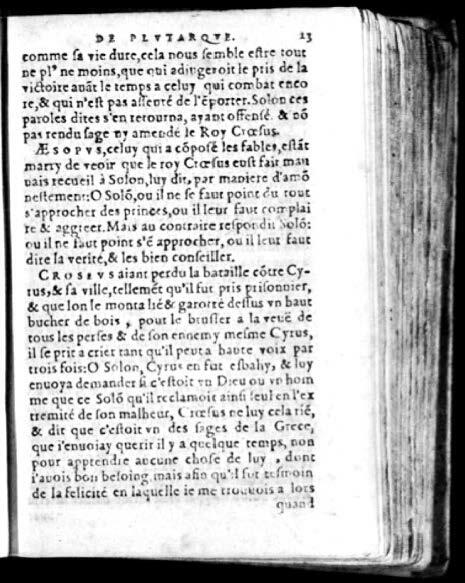 DE PLVTARQVE. 13
comme sa vie dure, cela nous semble estre tout
ne plꝰ ne moins, que qui adiugeroit le pris de la
victoire auāt le temps a celuy qui combat enco
re, & qui n'est pas asseuré de l'ēporter. Solon ces
paroles dites s'en retourna, ayant offensé & nō
pas rendu sage ny amendé le Roy Crœsus.
ÆSOPVS, celuy qui a cōposé les fables, estāt
marry de veoir que le roy Crœsus eust fait mau
uais recueil à Solon, luy dit, par maniere d'amō
nestement: O Solō, ou il ne se faut point du tout
s'approcher des princes, ou il leur faut complai
re & aggreer. Mais au contraire respondit Solō:
ou il ne faut point s'ē approcher, ou il leur faut
dire la verité, & les bien conseiller.
CROSEVS aiant perdu la bataille cōtre Cy-
rus, & sa ville, tellemēt qu'il fut pris prisonnier,
& que lon le monta lié & garotté dessus vn haut
bucher de bois, pour le brusler a la veuë de
tous les perses & de son ennemy mesme Cyrus,
il se prit a crier tant qu'il peut a haute voix par
trois fois: O Solon, Cyrus en fut esbahy, & luy
enuoya demander si c'estoit vn Dieu ou vn hom
me que ce Solō qu'il reclamoit ainsi seul en l'ex
tremité de son malheur, Crœsus ne luy cela rié,
& dit que c'estoit vn des sages de la Grece,
que i'enuoiay querir il y a quelque temps, non
pour apprendre aucune chose de luy, dont
i'auois bon besoing, mais afin qu'il fut tesmoin
de la felicité en laquelle ie me trouuois a lors
quand